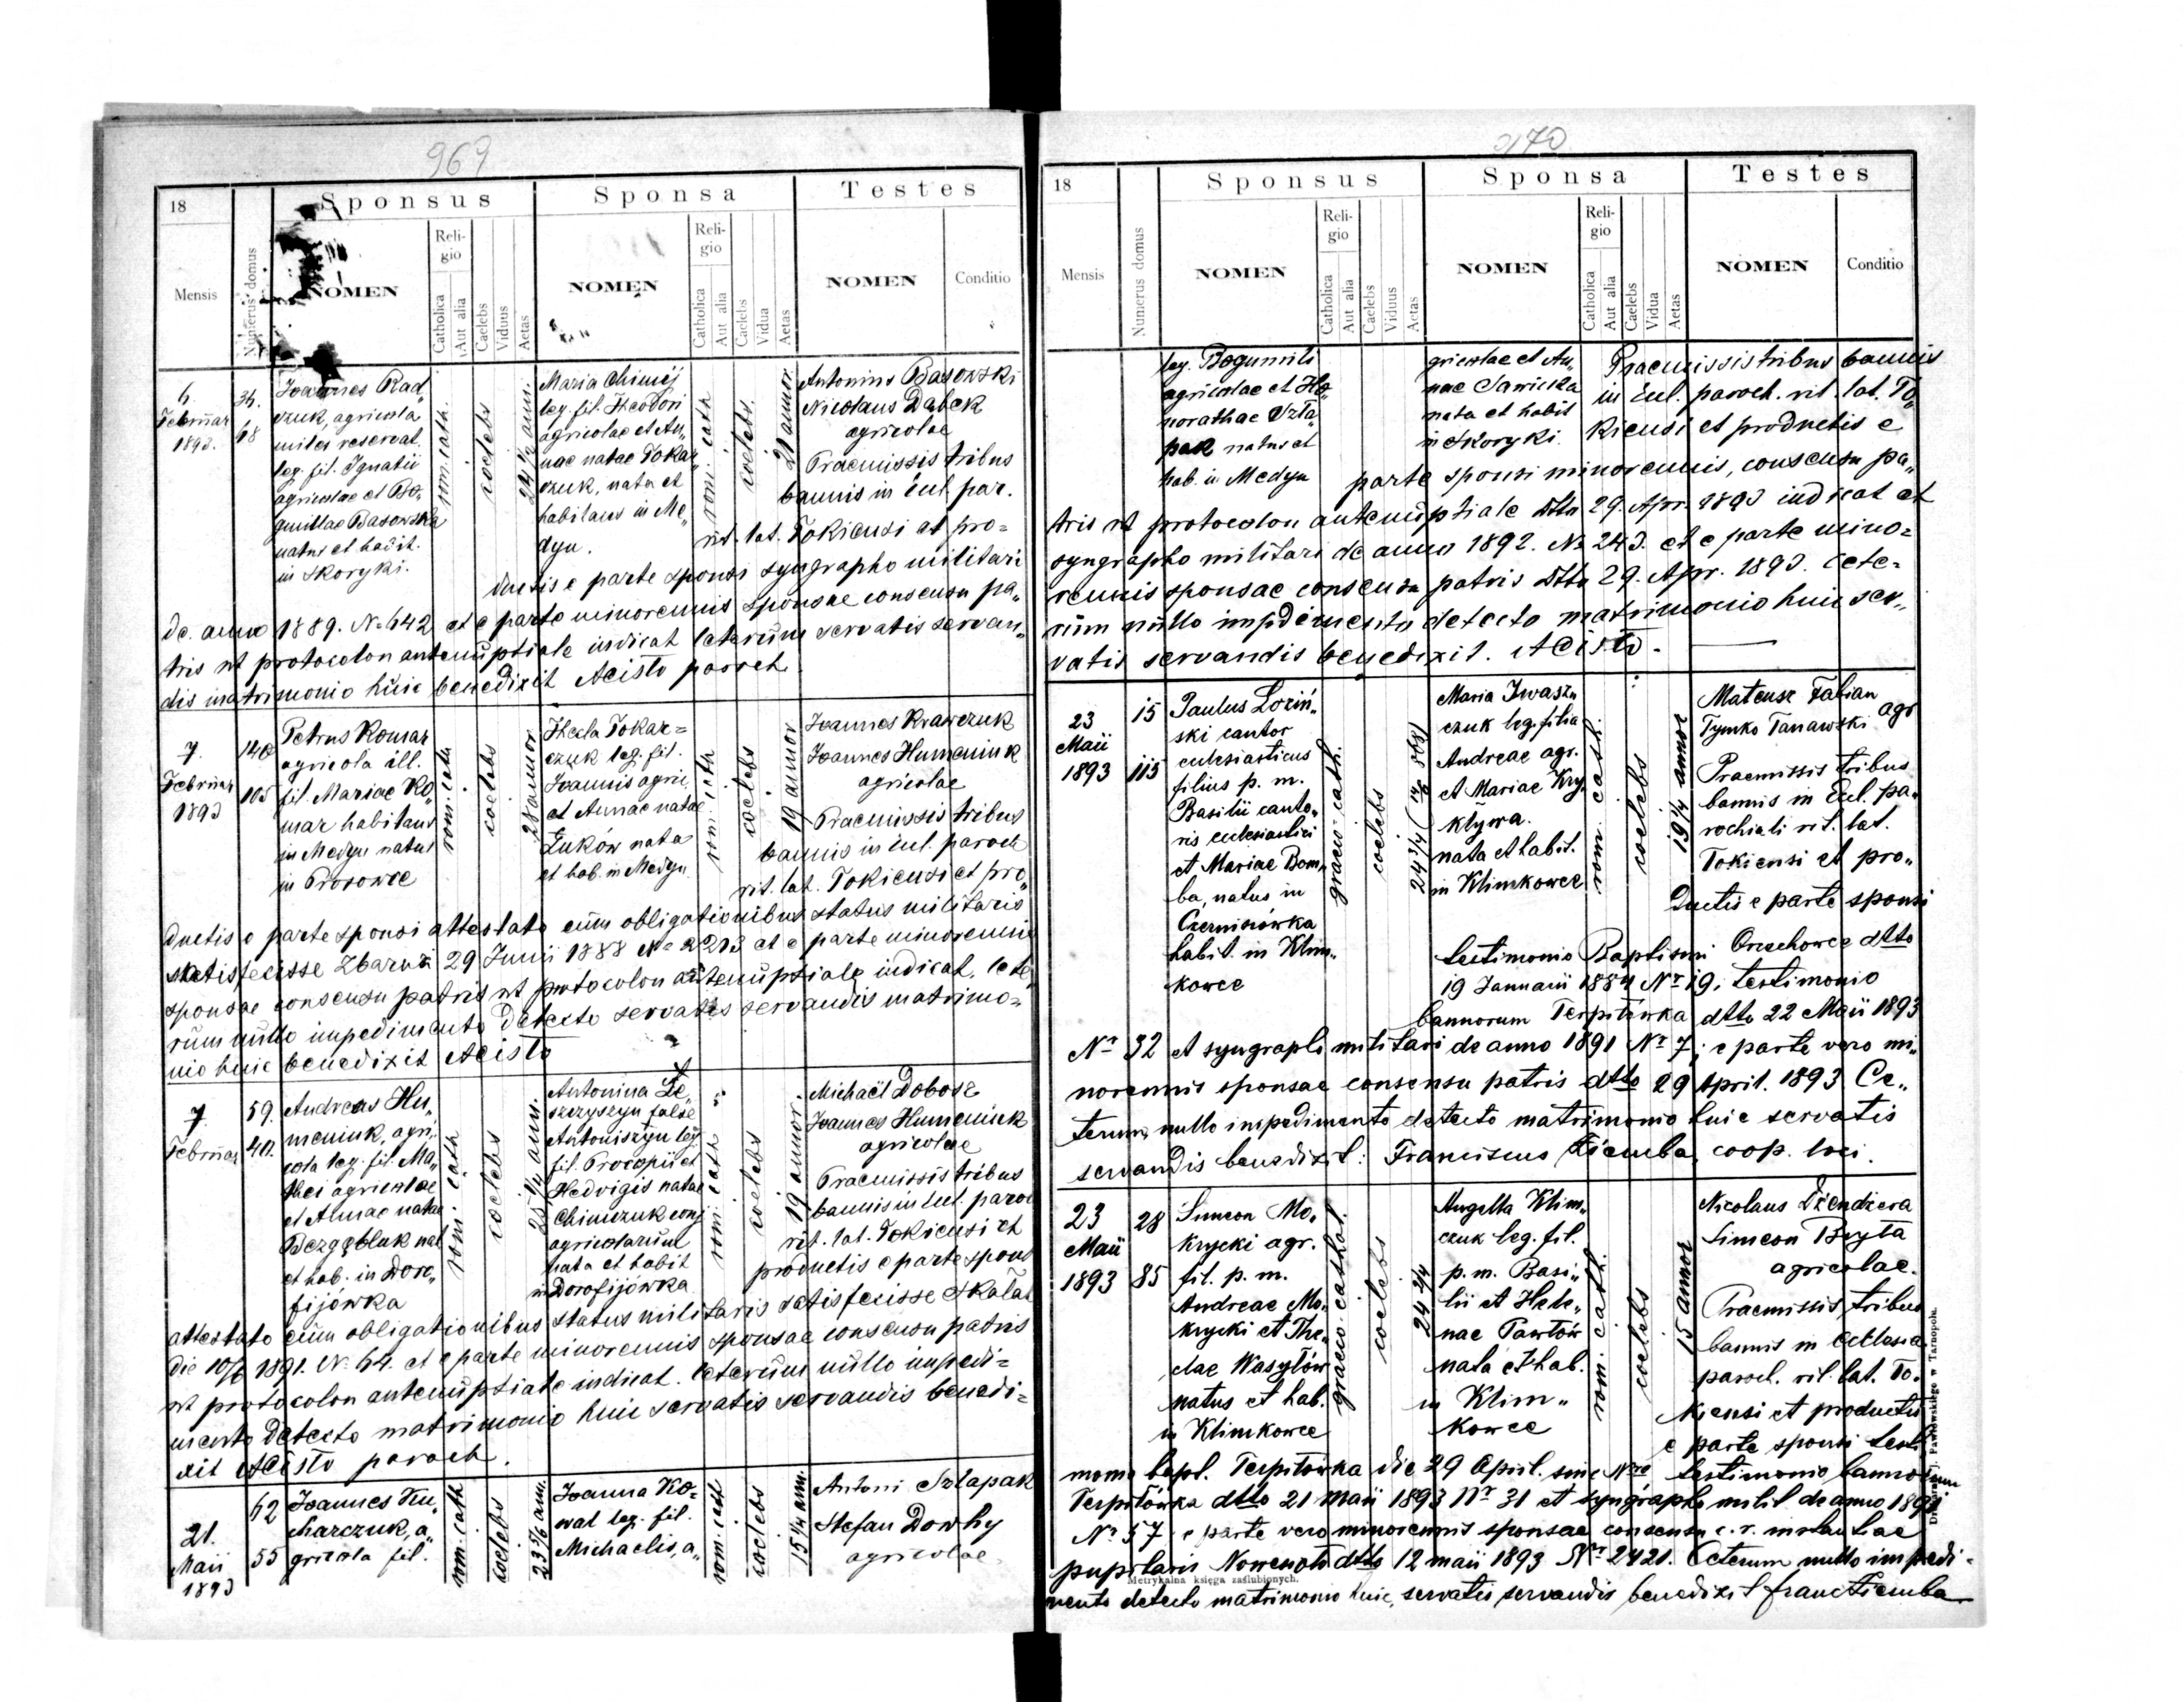 969
18
Sponsus
Sponsa
Testes
Mensis
Numerus domus
NOMEN
Religio
Catholica
Aut alia
Caelebs
Viduus
Aetas
NOMEN
Religio
Catholica
Aut alia
Caelebs
Vidua
Aetas
NOMEN
Conditio
Februar
1893.
34.
68
Joannes Rad„
czuk, agricola
miles reservat.
leg. fil. Ignatii
agricolae et Bo„
Basowska
natus et habit.
in Skoryki.
rom. cath.
coelebs
24 1/2 ann.
Maria Chimij
leg. fil. Theodori
agricolae et An„
nae natae Tokar„
czuk, nata et
habitans in Me„
dyn.
rom. cath
coelebs.
21 annor
Antonius Basowski
Nicolaus Dąbek
agricolae
Praemissis tribus
bannis in Eccl. par.
rit. lat. Tokiensi et pro=
ductis e parte sponsi syngrapho militari
de anno 1889. No 642 et e parte minorennis sponsae consensu pa„
tris ut protocolon antenuptiale indicat ceterum servatis servan„
dis matrimonio huic benedixit Acisło paroch
7.
Februar
1893
140
105
Petrus Komar
agricola ill.
fil. Mariae Ko„
mar habitans
in Medyn natus
in Prosowce
rom. cath
coelebs
28 annor
Thecla Tokar=
czuk leg. fil.
Joannis agric
et Annae natae
Żuków nata
et hab. in Medyn
rom. cath
coelebs
19 annor
Joannes Krawczuk
Joannes Humeniuk
agricolae
Praemissis tribus
bannis in Eccl. paroch
rit. lat. Tokiensi et pro„
ductis e parte sponsi attestato cum obligationibus status militaris
satisfecisse Zbaraż 29 Junii 1888 No 2213 et e parte minorennis
sponsae consensu patris ut protocolon antenuptiale indicat, cete„
rum nullo impedimento detecto servatis servandis matrimo=
nio huic benedixit Acisło
7.
Februar
59.
40.
Andreas Hu„
meniuk, agri„
cola leg. fil. Ma„
thei agricolae
et Annae natae
Bezgębluk nat
et hab. in Doro„
fijówka
rom. cath
coelebs
25 1/4 ann.
Antonina Le„
szczyszyn false
Antoniszyn leg
fil. Procopii et
Hedvigis natae
Chimczuk conj
agricolarum
nata et habit
in Dorofijówka
rom. cath
coelebs
19 annor.
Michaël Dobosz
Joannes Humeniuk
agricolae
Praemissis tribus
bannis in Eccl. paroc
rit. lat. Tokiensi et
productis e parte spons
attestato cum obligationibus status militaris satisfecisse Skałat
die 10/6 1891. No 64. et e parte minorennis sponsae consensu patris
ut protocolon antenuptiale indicat. Ceterum nullo impedi=
mento detecto matrimonio huic servatis servandis benedi=
xit Acisło paroch.
21.
Maii
1893
62
55
Joannes Ku„
charczuk, a„
gricola fil.
rom. cath
coelebs
23 5/6 ann.
Joanna Ko=
wal leg. fil.
Michaelis, a„
rom. cath
coelebs
15 1/4 ann.
Antoni Szlapak
Stefan Dowhy
agricolae
970
18
Sponsus
Sponsa
Testes
Mensis
Numerus domus
NOMEN
Religio
Catholica
Aut alia
Caelebs
Viduus
Aetas
NOMEN
Religio
Catholica
Aut alia
Caelebs
Vidua
Aetas
NOMEN
Conditio
leg. Bogumili
agricolae et Ho„
norathae Szla„
pak natus et
hab. in Medyn
gricolae et An„
nae Sawicka
nata et habit
in Skoryki.
Praemissis tribus bannis
in Eccl. paroch. rit. lat. To„
kiensi et productis e
parte sponsi minorennis, consensu pa„
tris ut protocolon antenuptiale dtto 29. Apr. 1893 indicat et
syngrapho militari de anno 1892. No 243. et e parte mino=
rennis sponsae consensu patris dtto 29. Apr. 1893. Cete=
rum nullo impedimento detecto matrimonio huic ser„
vatis servandis benedixit. Acisło.
23
Maii
1893
15
115
Paulus Loziń„
ski cantor
ecclesiasticus
filius p. m.
Basilii canto„
ris ecclesiastici
et Mariae Bom„
ba, natus in
Czernisiówka
habit. in Klim„
kowce
graeco-cath.
coelebs
24 3/4
Maria Iwaszu
czuk leg. filia
Andreae agr.
et Mariae Kry„
kływa.
nata et habit.
in Klimkowce
rom. cath.
coelebs
19 1/4 annor
Mateusz Fabian
Tymko Tarnawski agr
Praemissis tribus
bannis in Eccl. pa„
rochiali rit. lat.
Tokiensi et pro„
ductis e parte sponsi
testimonio Baptismi Orzechowce dtto
19 Januarii 1884 Nr 19; testimonio
bannorum Terpiłówka dtto 22 Maii 1893
Nr 32 et syngrapho militari de anno 1891 Nr 7; e parte vero mi„
norennis sponsae consensu patris dtto 29 April. 1893 Ce„
terum, nullo impedimento detecto matrimonio huic servatis
servandis benedixit: Franciscus Ziemba, coop. loci.
23
Maii
1893
28
85
Simeon Mo„
krycki agr.
fil. p. m.
Andreae Mo„
krycki et The„
clae Wasylów
natus et hab.
in Klimkowce
graeco-cathol.
coelebs
24 2/4
Angella Klim„
czuk leg. fil.
p. m. Basi„
lii et Hele„
nae Pawłów
nata et hab.
in Klim„
kowce
rom. cath.
coelebs
15 annor
Nicolaus Dżendżera
Simeon Bryła
agricolae.
Praemissis tribus
bannis in Ecclesia
paroch. rit. lat. To„
kiensi et productis
e parte sponsi testi
monio bapt. Terpiłówka die 29 April. sine Nro testimonio bannorum
Terpiłówka dtto 21 Maii 1893 Nr 31 et syngrapho milit de anno 1891
Nr 57 e parte vero minorennis sponsae consensu c. r. instantiae
pupilaris Nowesioło dtto 12 maii 1893 Nr 2421. Ceterum nullo impedi=
mento detecto matrimonio huic, servatis servandis benedixit Franc Ziemba
Metrykalna księga zaślubionych.
Pawłowskiego w Tarnopolu.